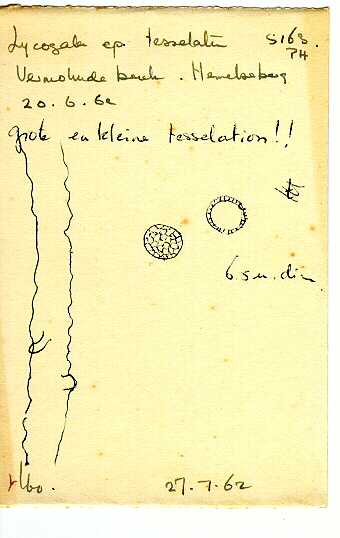 Lycogala ep tesselatum S168.
PH
Vermolmde berk. Hemelseberg
20.6.62
grote en kleine tesselation!!
6.5 u. dim.
27.7.62